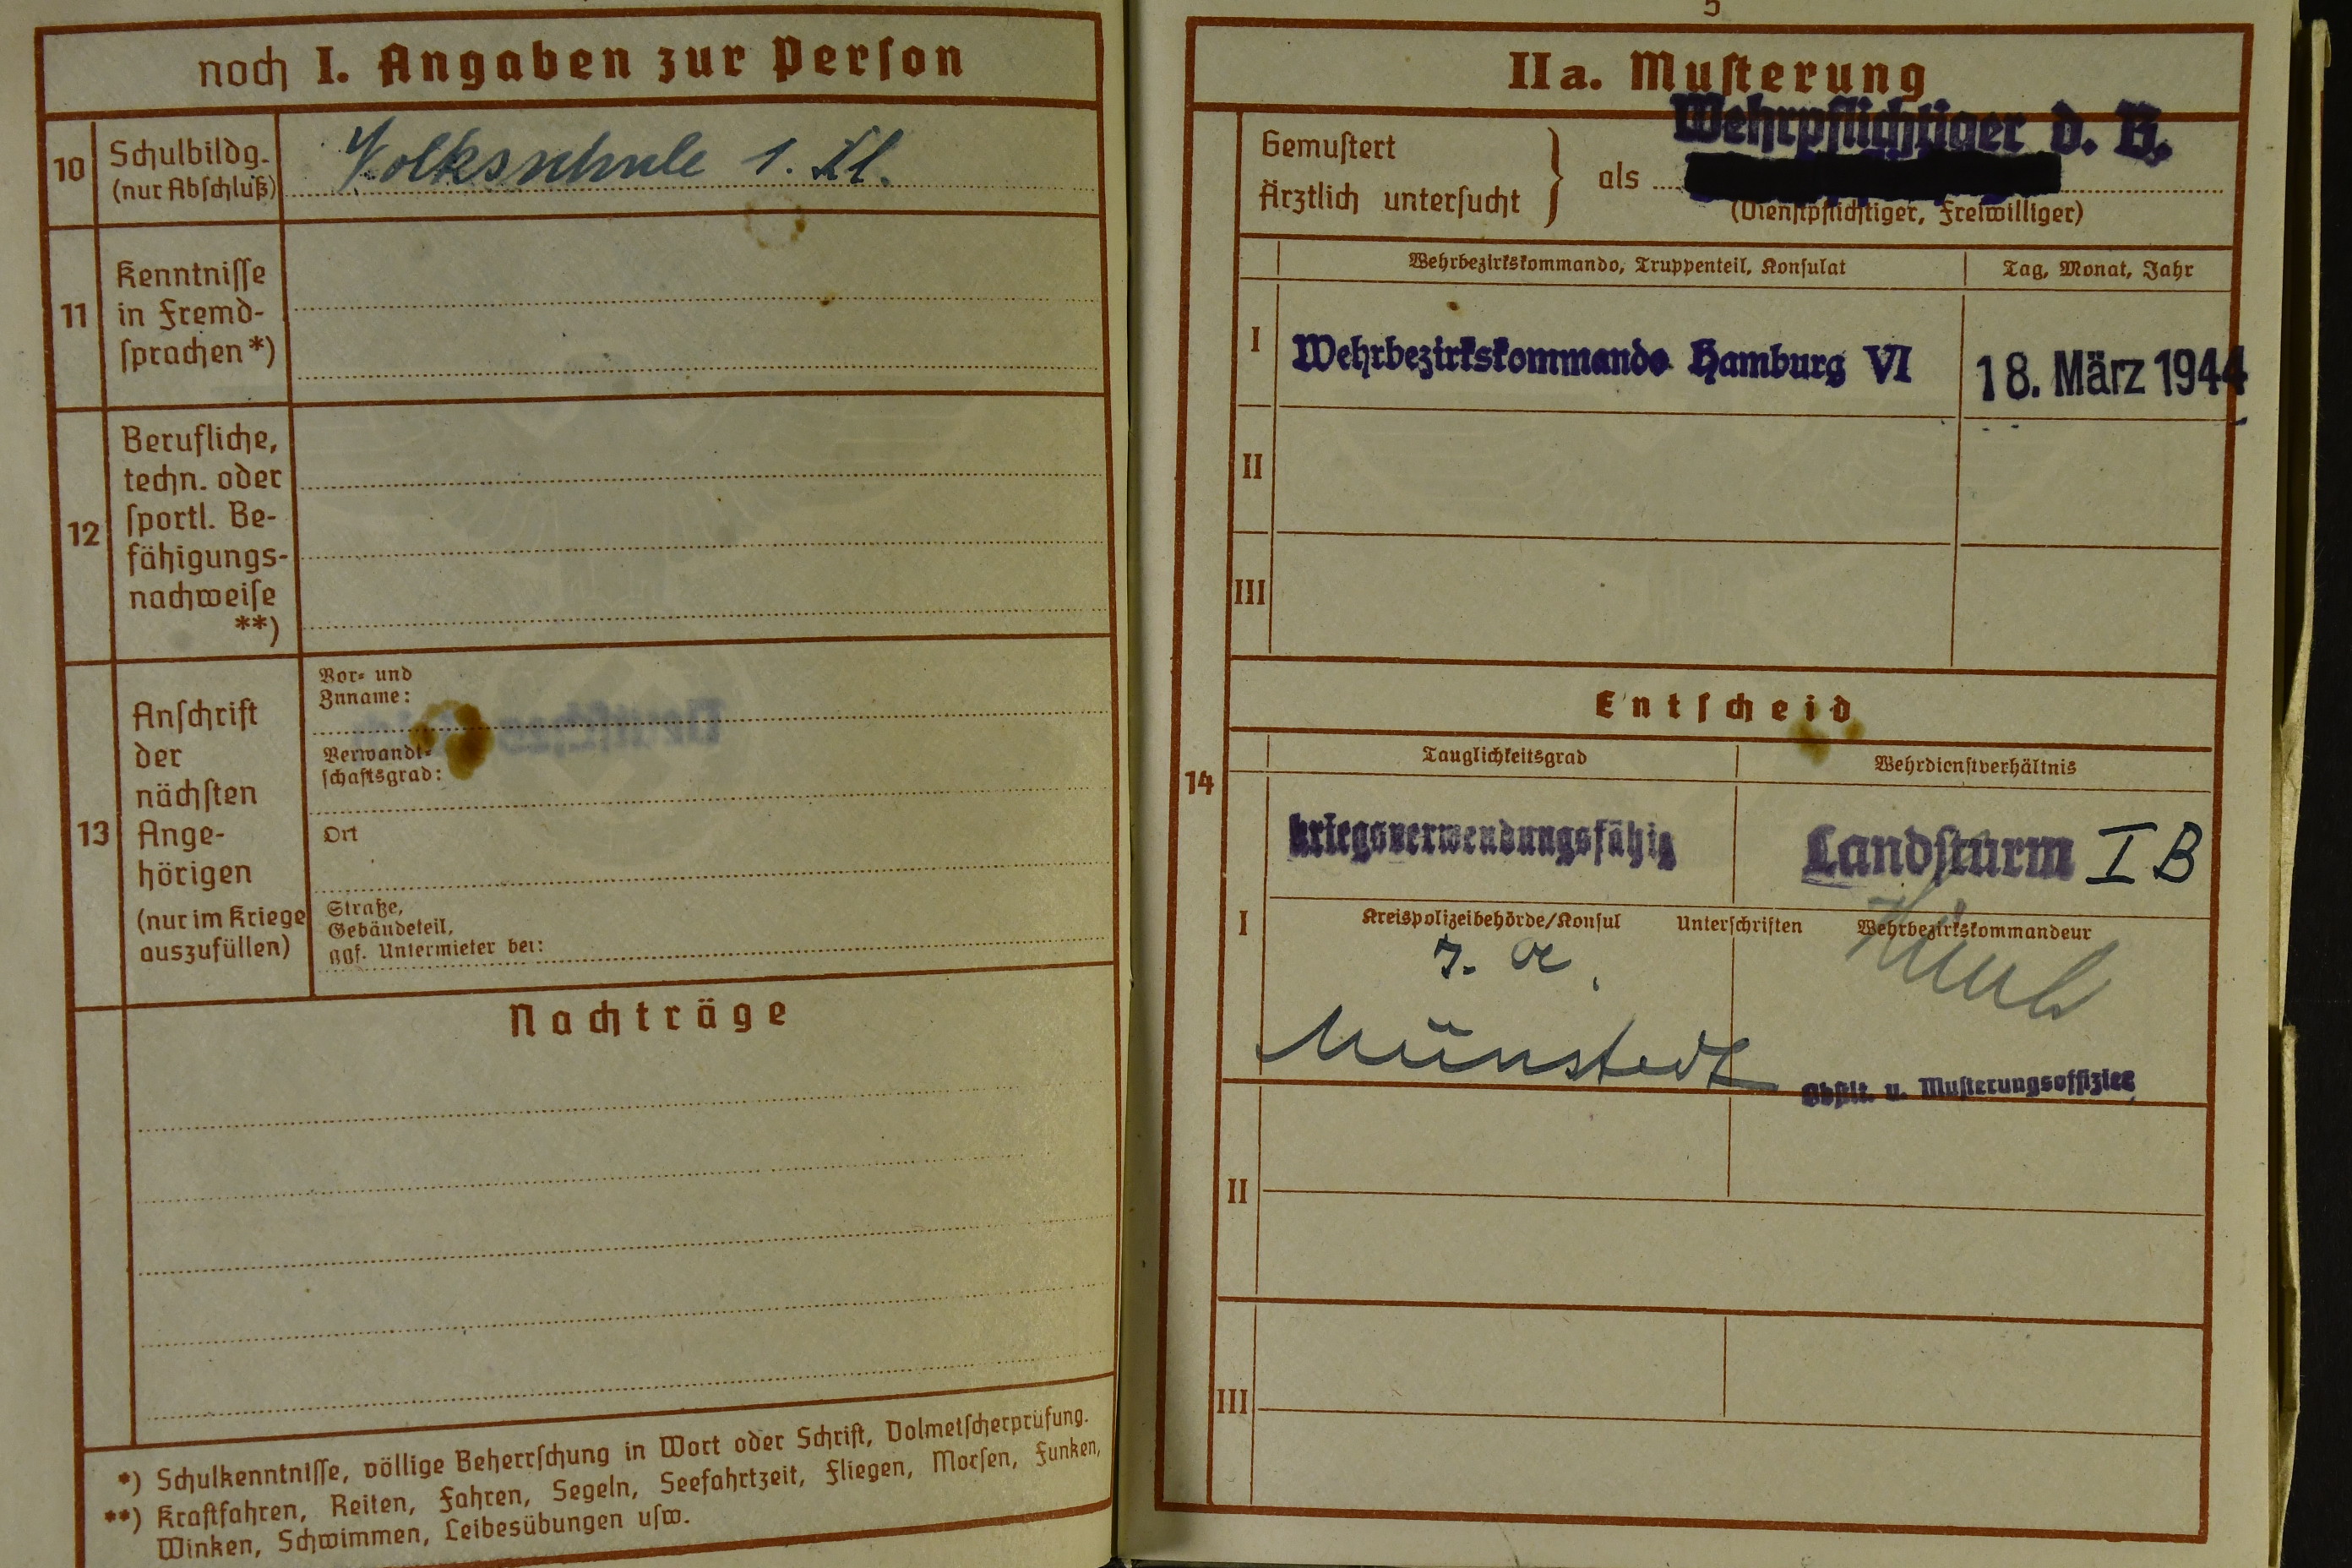 noch I. Angaben zur Person
10 Schulbildg.
(nur Abschluß)
Volksschule 1. Kl.
11 Kenntnisse
in Fremd-
sprachen *)
12 Berufliche,
techn. oder
sportl. Be-
fähigungs-
nachweise
**)
13 Anschrift
der
nächsten
Ange-
hörigen
(nur im Kriege
auszufüllen)
Vor- und
Zuname:
Verwandt-
schaftsgrad:
Ort
Straße,
Gebäudeteil,
ggf. Untermieter bei:
Nachträge
*) Schulkenntnisse, völlige Beherrschung in Wort oder Schrift, Dolmetscherprüfung.
**) Kraftfahren, Reiten, Fahren, Segeln, Seefahrtzeit, Fliegen, Morsen, Funken,
Winken, Schwimmen, Leibesübungen usw.
5
IIa. Musterung
Wehrpflichtiger d. B.
Gemustert
Ärztlich untersucht } als
(Dienstpflichtiger, Freiwilliger)
Wehrbezirkskommando, Truppenteil, Konsulat Tag, Monat, Jahr
I Wehrbezirkskommando Hamburg VI 18. März 1944
II
III
Entscheid
14
Tauglichkeitsgrad Wehrdienstverhältnis
kriegsverwendungsfähig Landsturm I B
I Kreispolizeibehörde/Konsul Unterschriften Wehrbezirkskommandeur
Münstedt
Obstlt. u. Musterungsoffizier
II
III